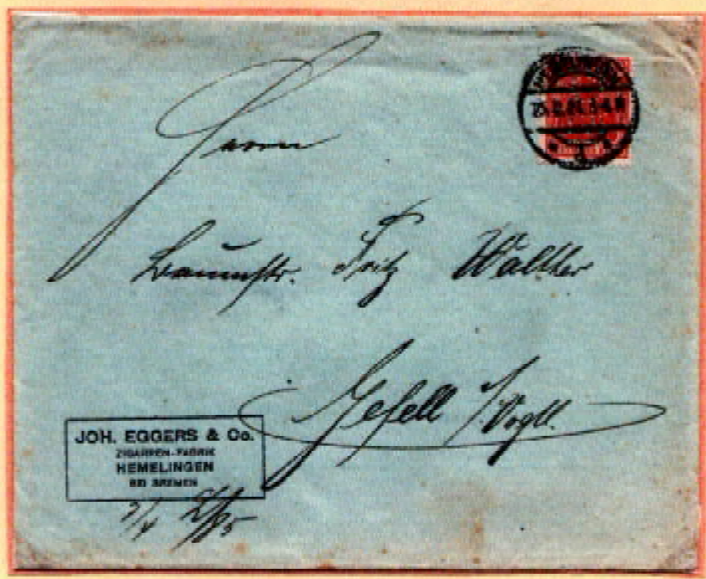 Herrn
Baumstr. Fritz Walther
Gefell i/Vogtl.
JOH. EGGERS & Co.
ZIGARREN-FABRIK
HEMELINGEN
BEI BREMEN